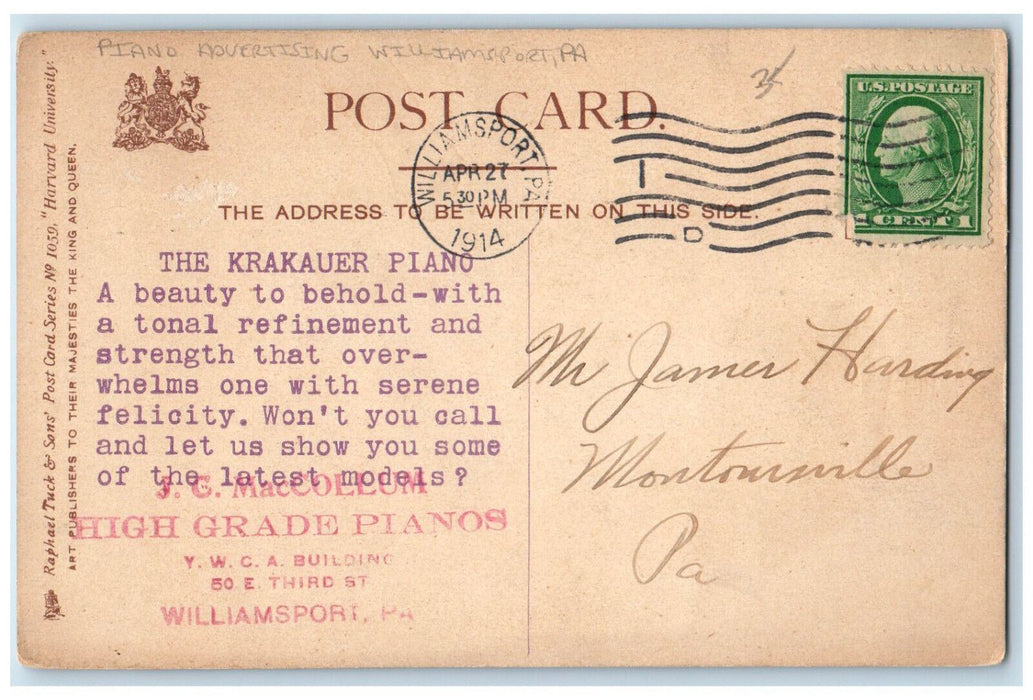 PIANO ADVERTISING WILLIAMSPORT, PA
POST CARD.
WILLIAMSPORT, PA
APR 27
5 30 PM
1914
1
D
U.S. POSTAGE
1 CENT 1
THE ADDRESS TO BE WRITTEN ON THIS SIDE.
Raphael Tuck & Sons' Post Card Series Nº 1059. "Harvard University."
ART PUBLISHERS TO THEIR MAJESTIES THE KING AND QUEEN.
THE KRAKAUER PIANO
A beauty to behold-with
a tonal refinement and
strength that over-
whelms one with serene
felicity. Won't you call
and let us show you some
of the latest models?
J. G. MacCOLLUM
HIGH GRADE PIANOS
Y. W. C. A. BUILDING
50 E. THIRD ST
WILLIAMSPORT, PA
Mr James Harding
Montoursville
Pa